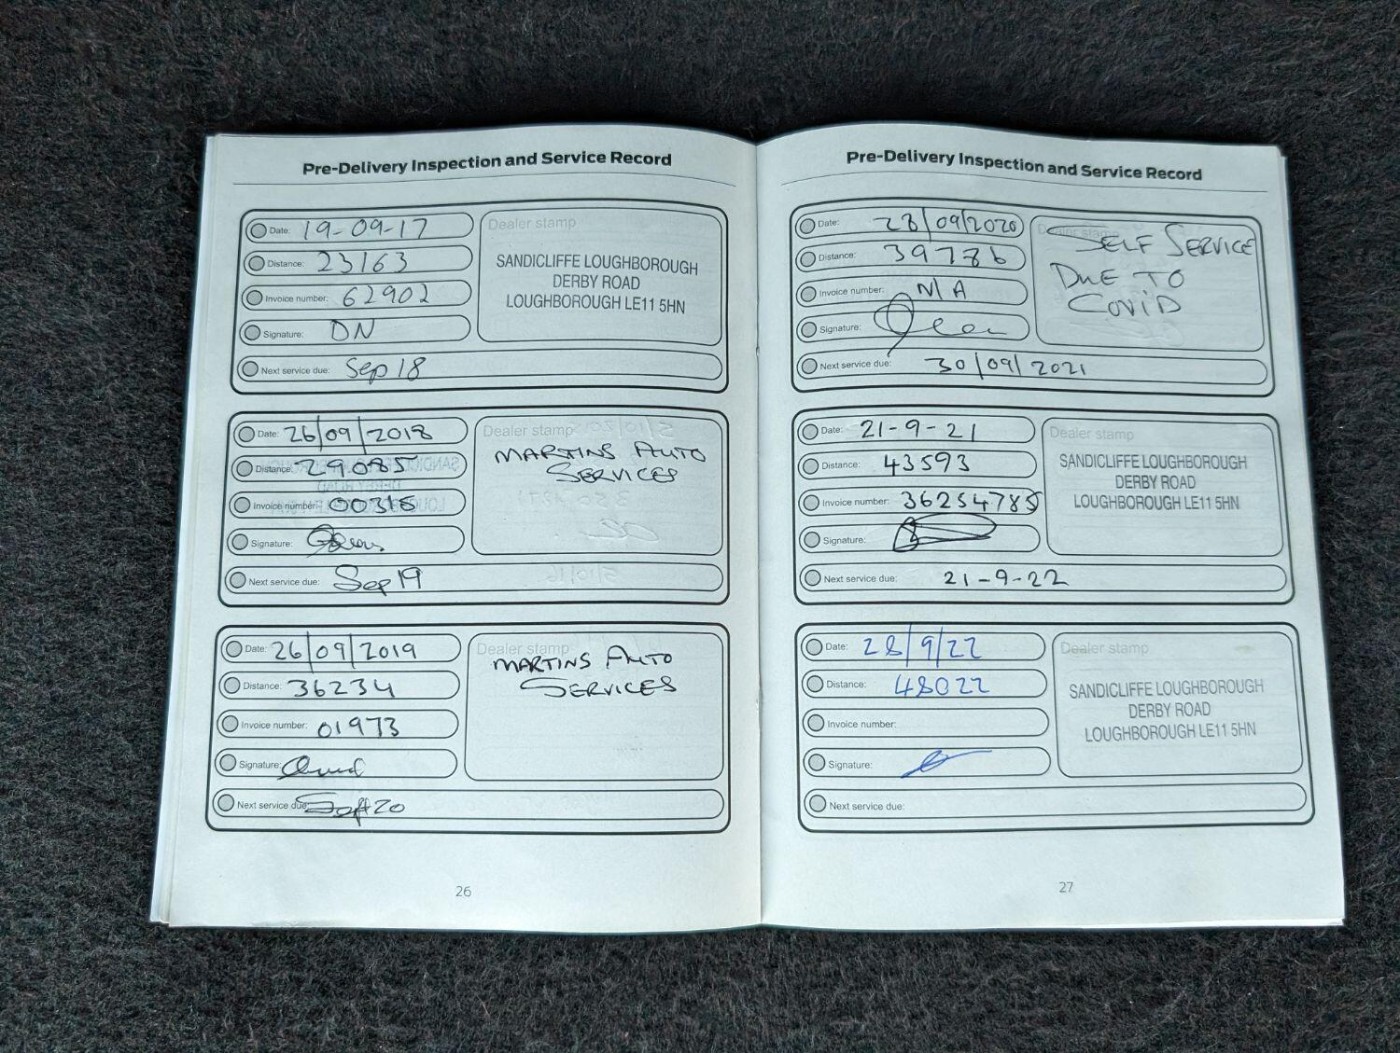 Pre-Delivery Inspection and Service Record
Date: 19-09-17
Distance: 23163
Invoice number: 62902
Signature: DN
Next service due: Sep 18
Dealer stamp
SANDICLIFFE LOUGHBOROUGH
DERBY ROAD
LOUGHBOROUGH LE11 5HN
Date: 26/09/2018
Distance: 29085
Invoice number: 00316
Signature:
Next service due: Sep 19
Dealer stamp
MARTINS AUTO
SERVICES
Date: 26/09/2019
Distance: 36234
Invoice number: 01973
Signature:
Next service due: Sept 20
Dealer stamp
MARTINS AUTO
SERVICES
26
Pre-Delivery Inspection and Service Record
Date: 23/09/2020
Distance: 39786
Invoice number: N/A
Signature:
Next service due: 30/09/2021
Dealer stamp
SELF SERVICE
DUE TO
COVID
Date: 21-9-21
Distance: 43593
Invoice number: 36254785
Signature:
Next service due: 21-9-22
Dealer stamp
SANDICLIFFE LOUGHBOROUGH
DERBY ROAD
LOUGHBOROUGH LE11 5HN
Date: 28/9/22
Distance: 48022
Invoice number:
Signature:
Next service due:
Dealer stamp
SANDICLIFFE LOUGHBOROUGH
DERBY ROAD
LOUGHBOROUGH LE11 5HN
27